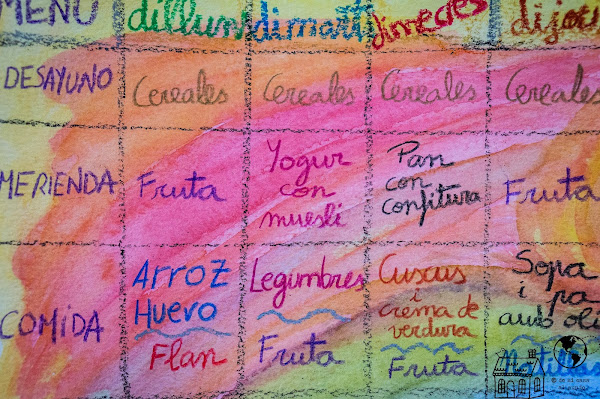 MENÚ dilluns dimarts dimecres dijous
DESAYUNO Cereales Cereales Cereales Cereales
MERIENDA Fruta Yogur con muesli Pan con confitura Fruta
COMIDA Arroz Huevo Flan Legumbres Fruta Cuscus i crema de verdura Fruta Sopa i pa amb oli Natillas